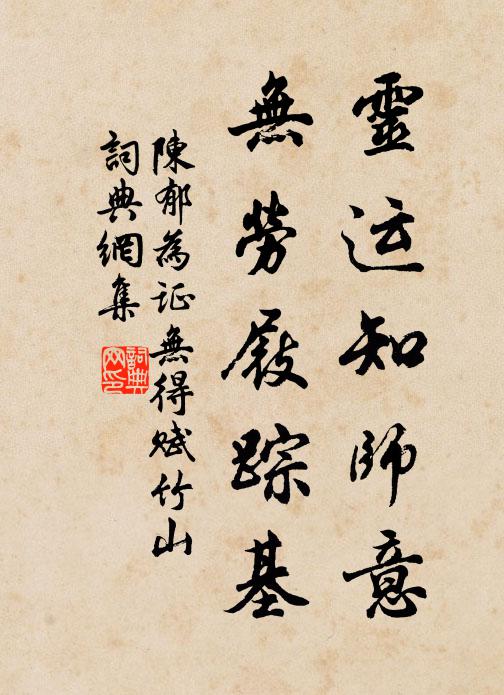 靈运知師意
無勞屐踪基
陳郁為证無得赋竹山
詞典網集
詞典网印